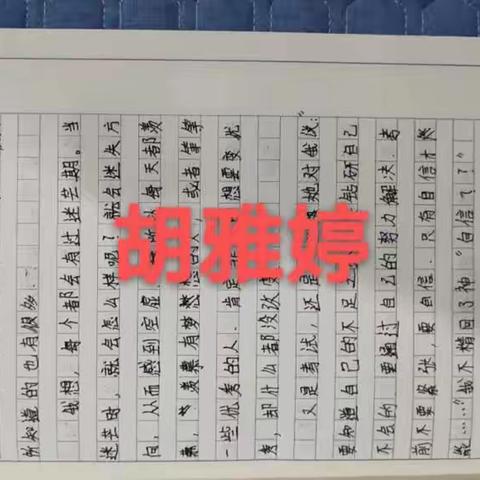 所知道的也有很多.
我想，每个都会有过迷茫期。当
迷茫时，就会怎么样呢？就会迷失方
向，从而感到空虚. 每天都羡
慕，羡慕有梦 的人，或者
一些优秀的人. 肯定 想要变优
秀，却什么都没改变
又是考试，还是 她对我说：
要知道自己的不足之 钻研自己
不会的 要通过自己的努力解决.考
前不要紧张，要自信. 只有自信才
能……"我不 回了神 "自信了？"
胡雅婷